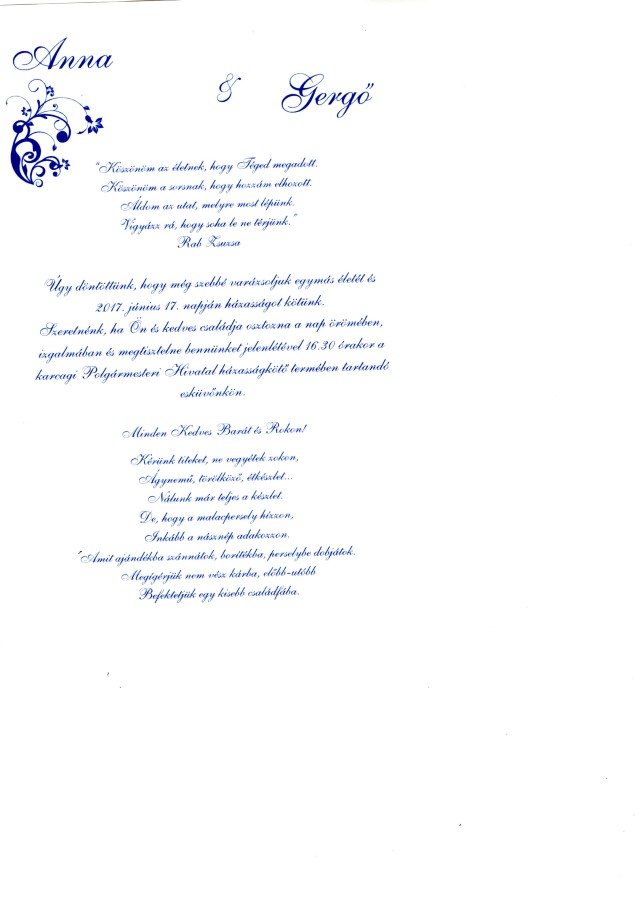 Anna
& Gergő
"Köszönöm az életnek, hogy Téged megadott.
Köszönöm a sorsnak, hogy hozzám elhozott.
Áldom az utat, melyre most lépünk.
Vigyázz rá, hogy soha le ne térjünk."
Rab Zsuzsa
Úgy döntöttünk, hogy még szebbé varázsoljuk egymás életét és
2017. június 17. napján házasságot kötünk.
Szeretnénk, ha Ön és kedves családja osztozna a nap örömében,
izgalmában és megtisztelne bennünket jelenlétével 16.30 órakor a
karcagi Polgármesteri Hivatal házasságkötő termében tartandó
esküvőnkön.
Minden Kedves Barát és Rokon!
Kérünk titeket, ne vegyétek zokon,
Ágynemű, törölköző, étkészlet...
Nálunk már teljes a készlet.
De, hogy a malacpersely hízzon,
Inkább a násznép adakozzon.
´Amit ajándékba szánnátok, borítékba, perselybe dobjátok.
Megígérjük nem vész kárba, előbb-utóbb
Befektetjük egy kisebb családfába.